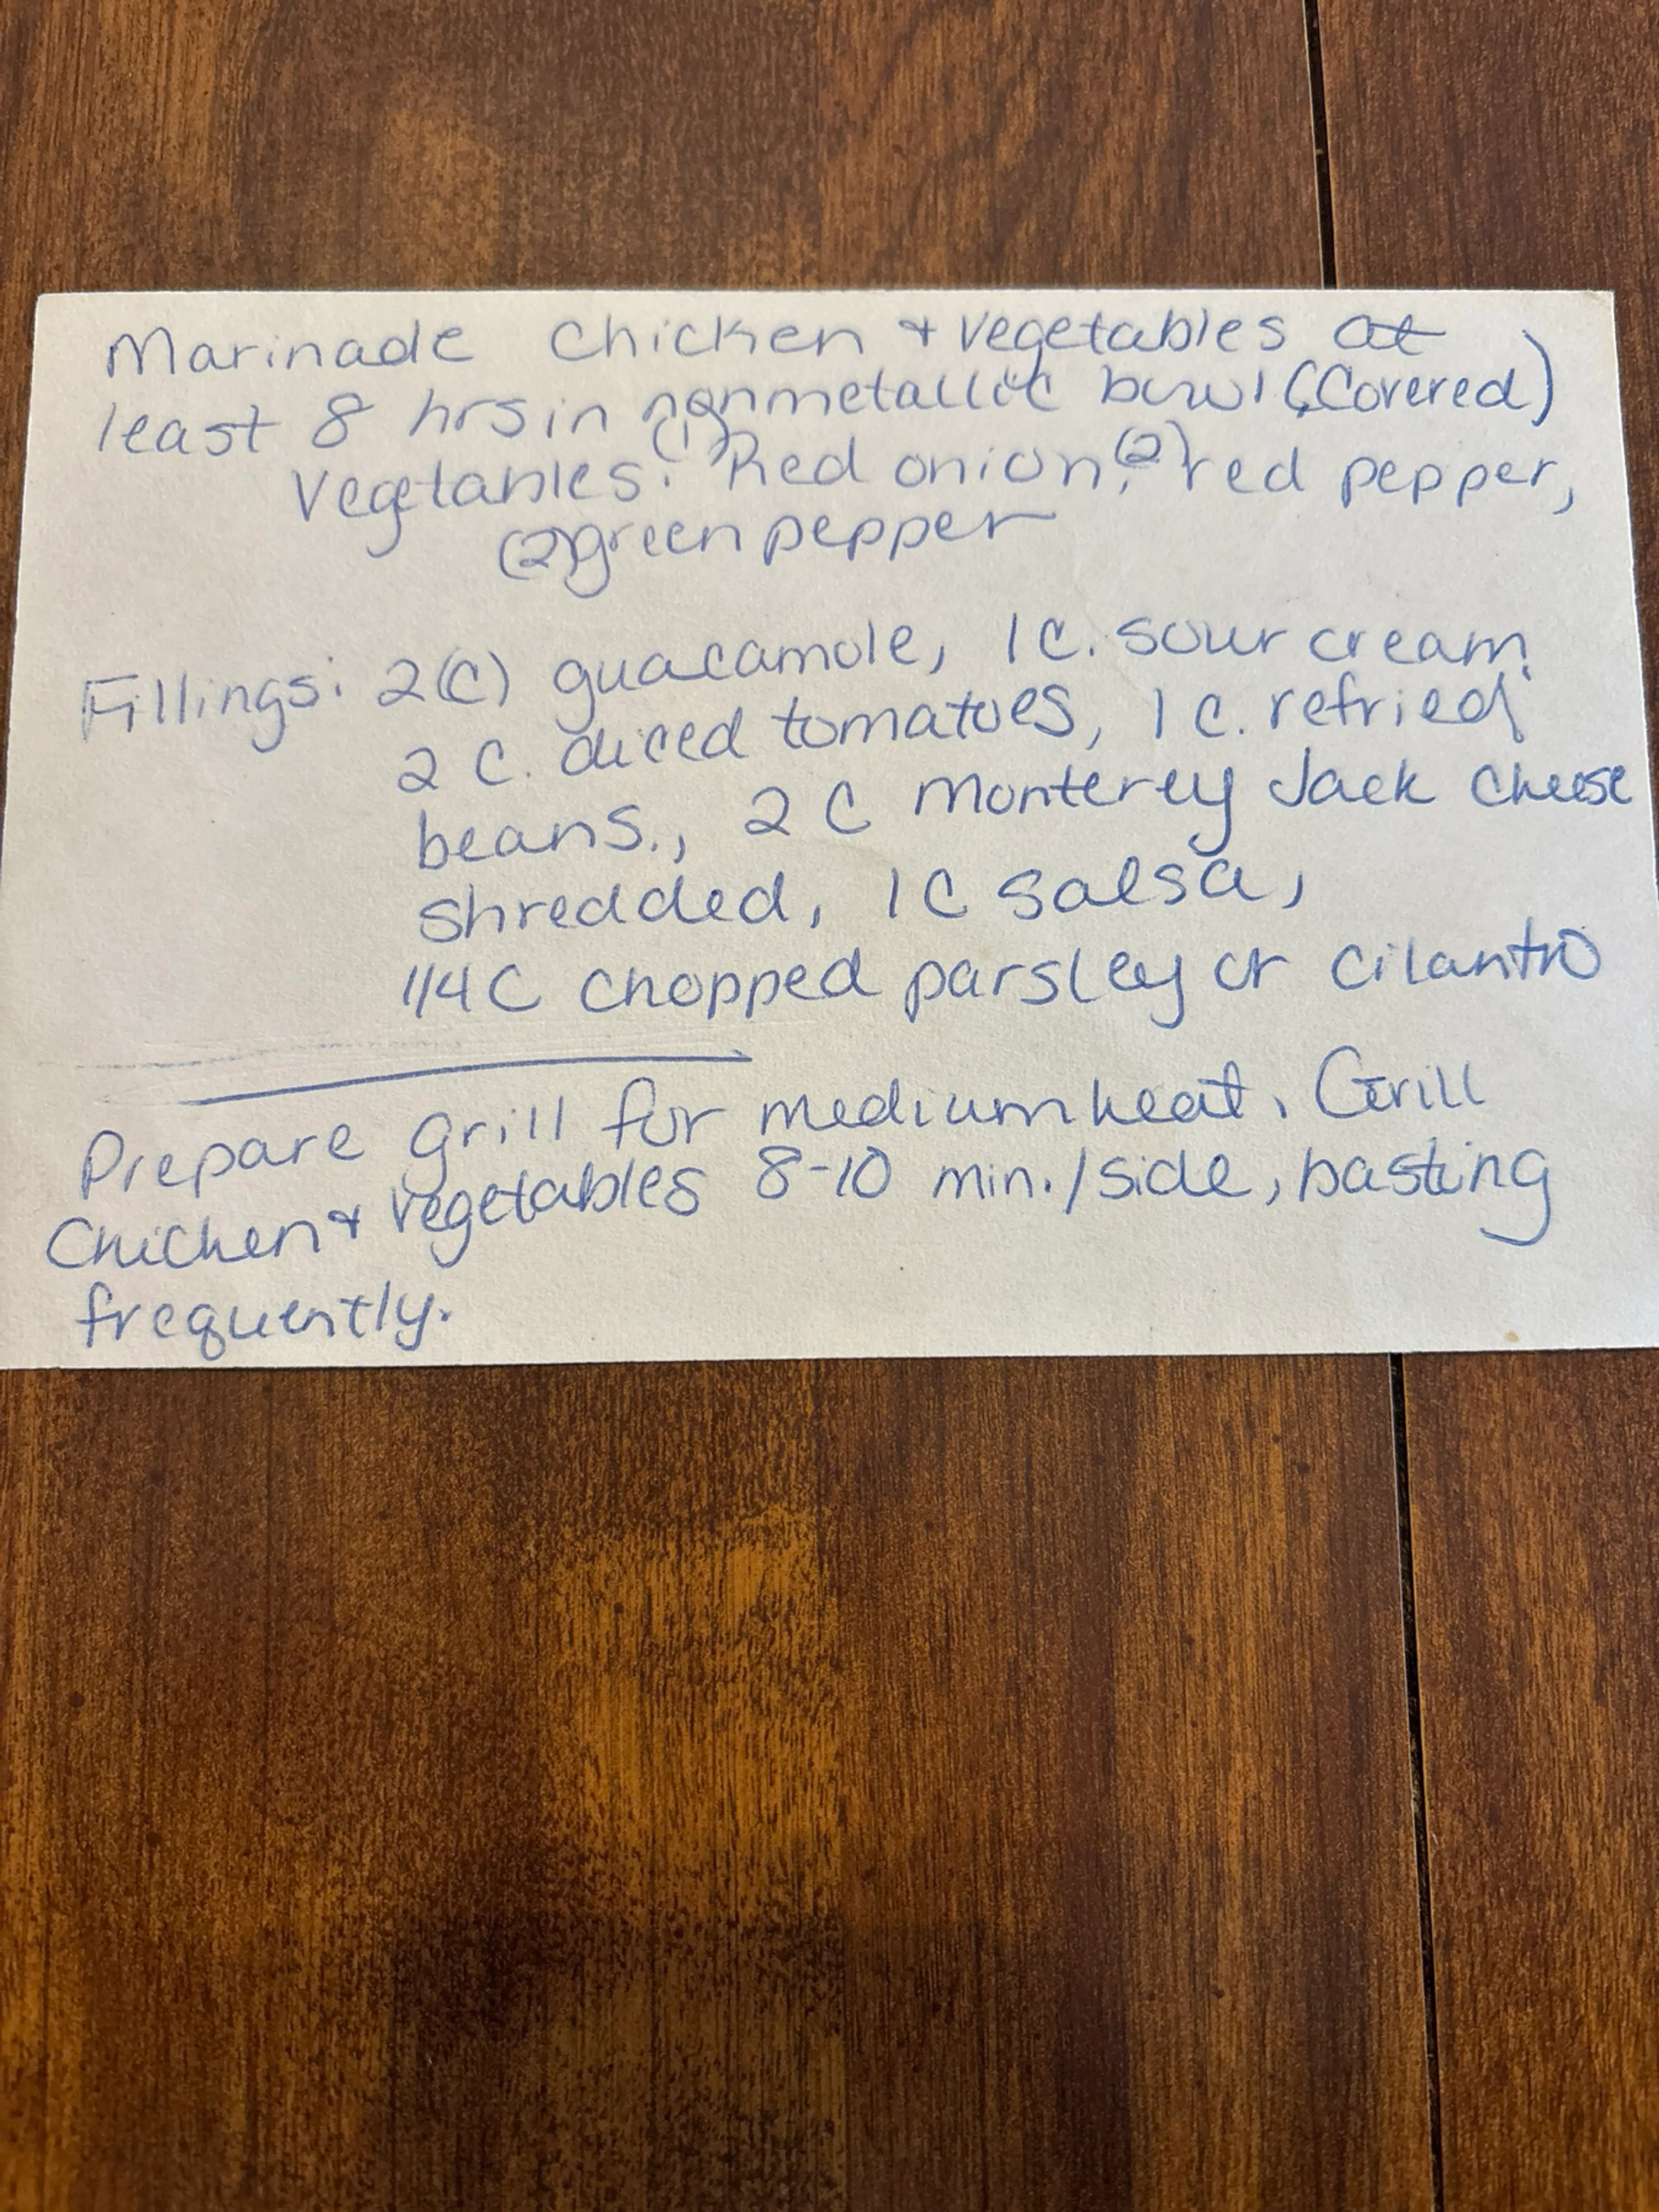 Marinade chicken + vegetables at
least 8 hrs in nonmetallic bowl (Covered)
Vegetables: (1) Red onion, (2) red pepper,
(2) green pepper
Fillings: 2(C) guacamole, 1 C. sour cream,
2 C. diced tomatoes, 1 C. refried
beans., 2 C Monterey Jack Cheese
shredded, 1 C salsa,
1/4 C chopped parsley or cilantro
Prepare grill for medium heat. Grill
Chicken + vegetables 8-10 min./side, basting
frequently.